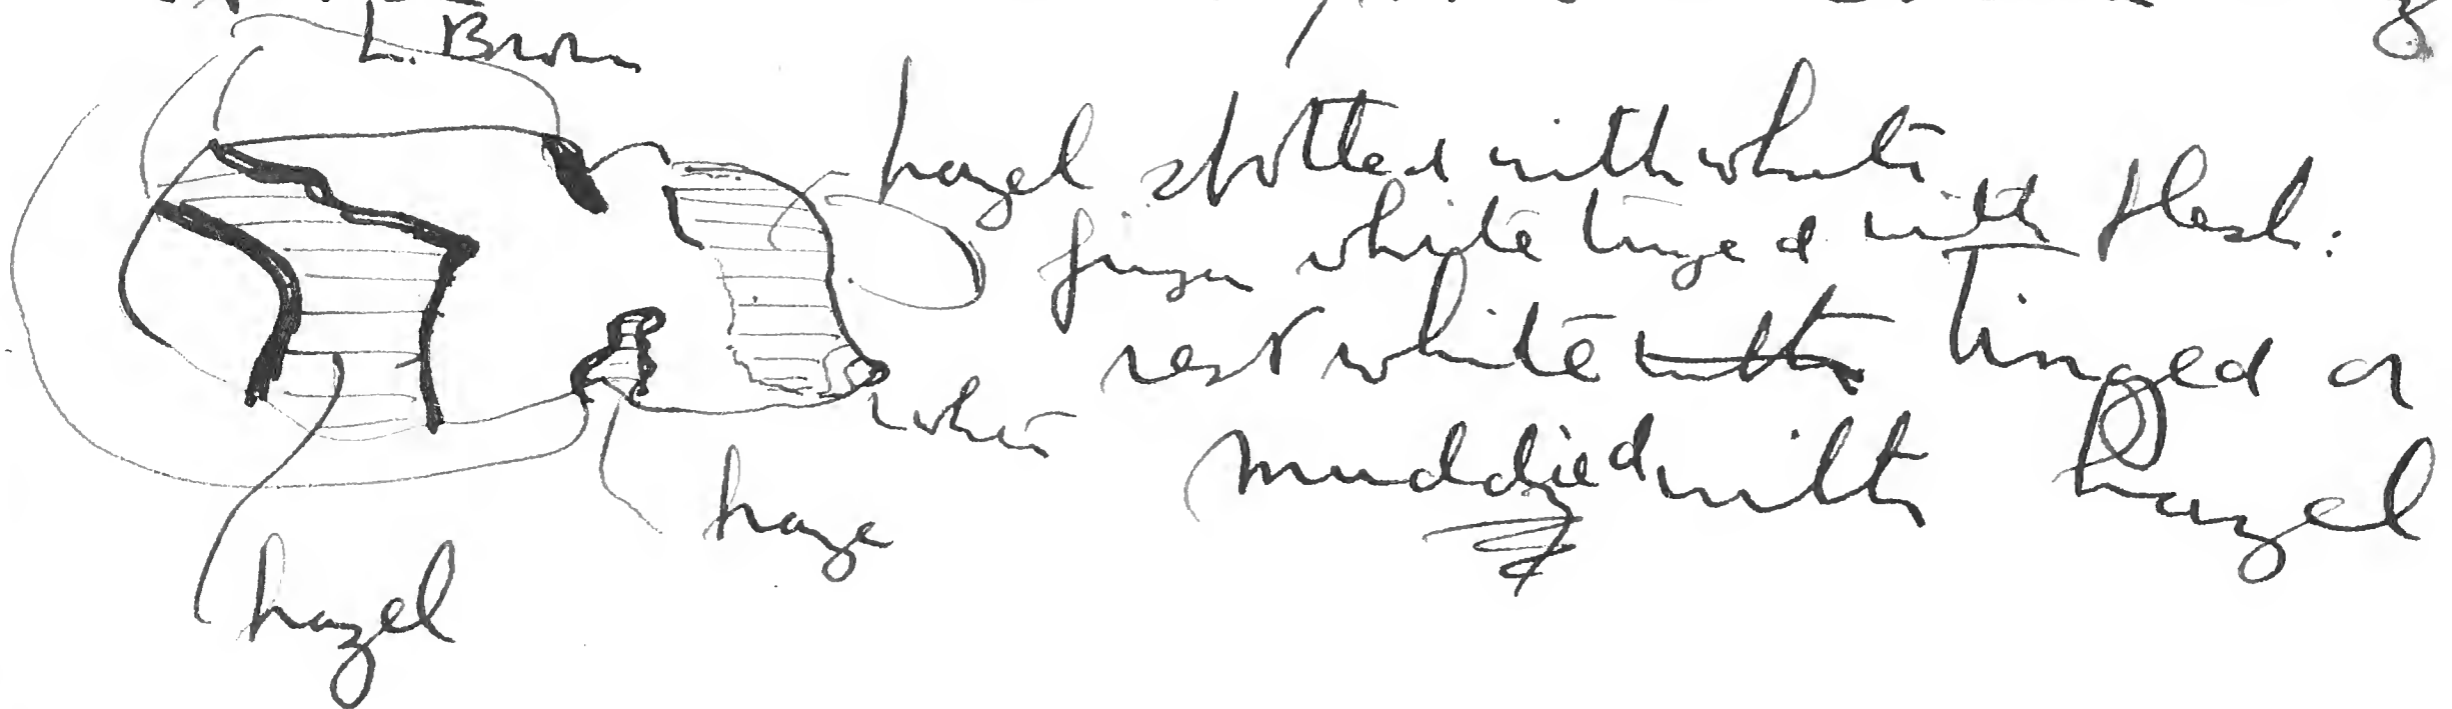 L. Brown
hazel spotted with white
finger white tinged with flesh:
rest white with tinged or
white
muddied with hazel
haze
hazel